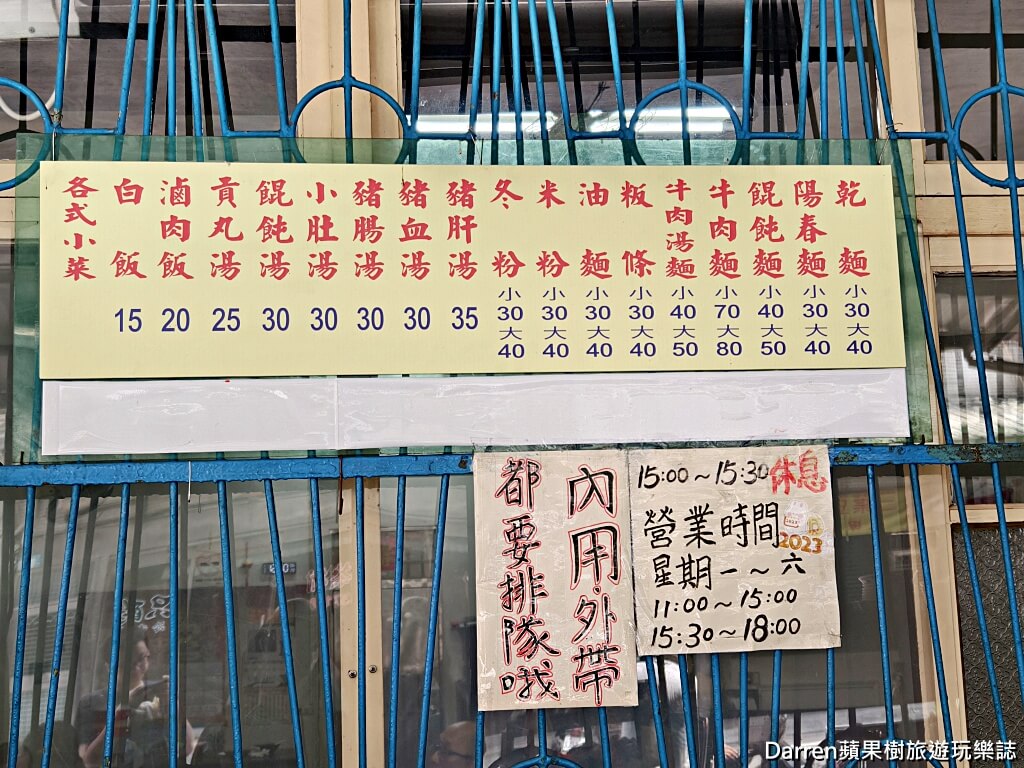 乾麵 小30 大40
陽春麵 小30 大40
餛飩麵 小40 大50
牛肉麵 小70 大80
牛肉湯麵 小40 大50
粄條 小30 大40
油麵 小30 大40
米粉 小30 大40
冬粉 小30 大40
豬肝湯 35
豬血湯 30
豬腸湯 30
小肚湯 30
餛飩湯 30
貢丸湯 25
滷肉飯 20
白飯 15
各式小菜
內用.外帶
都要排隊哦
15:00~15:30休息
營業時間
2023
星期一~六
11:00~15:00
15:30~18:00
Darren蘋果樹旅遊玩樂誌